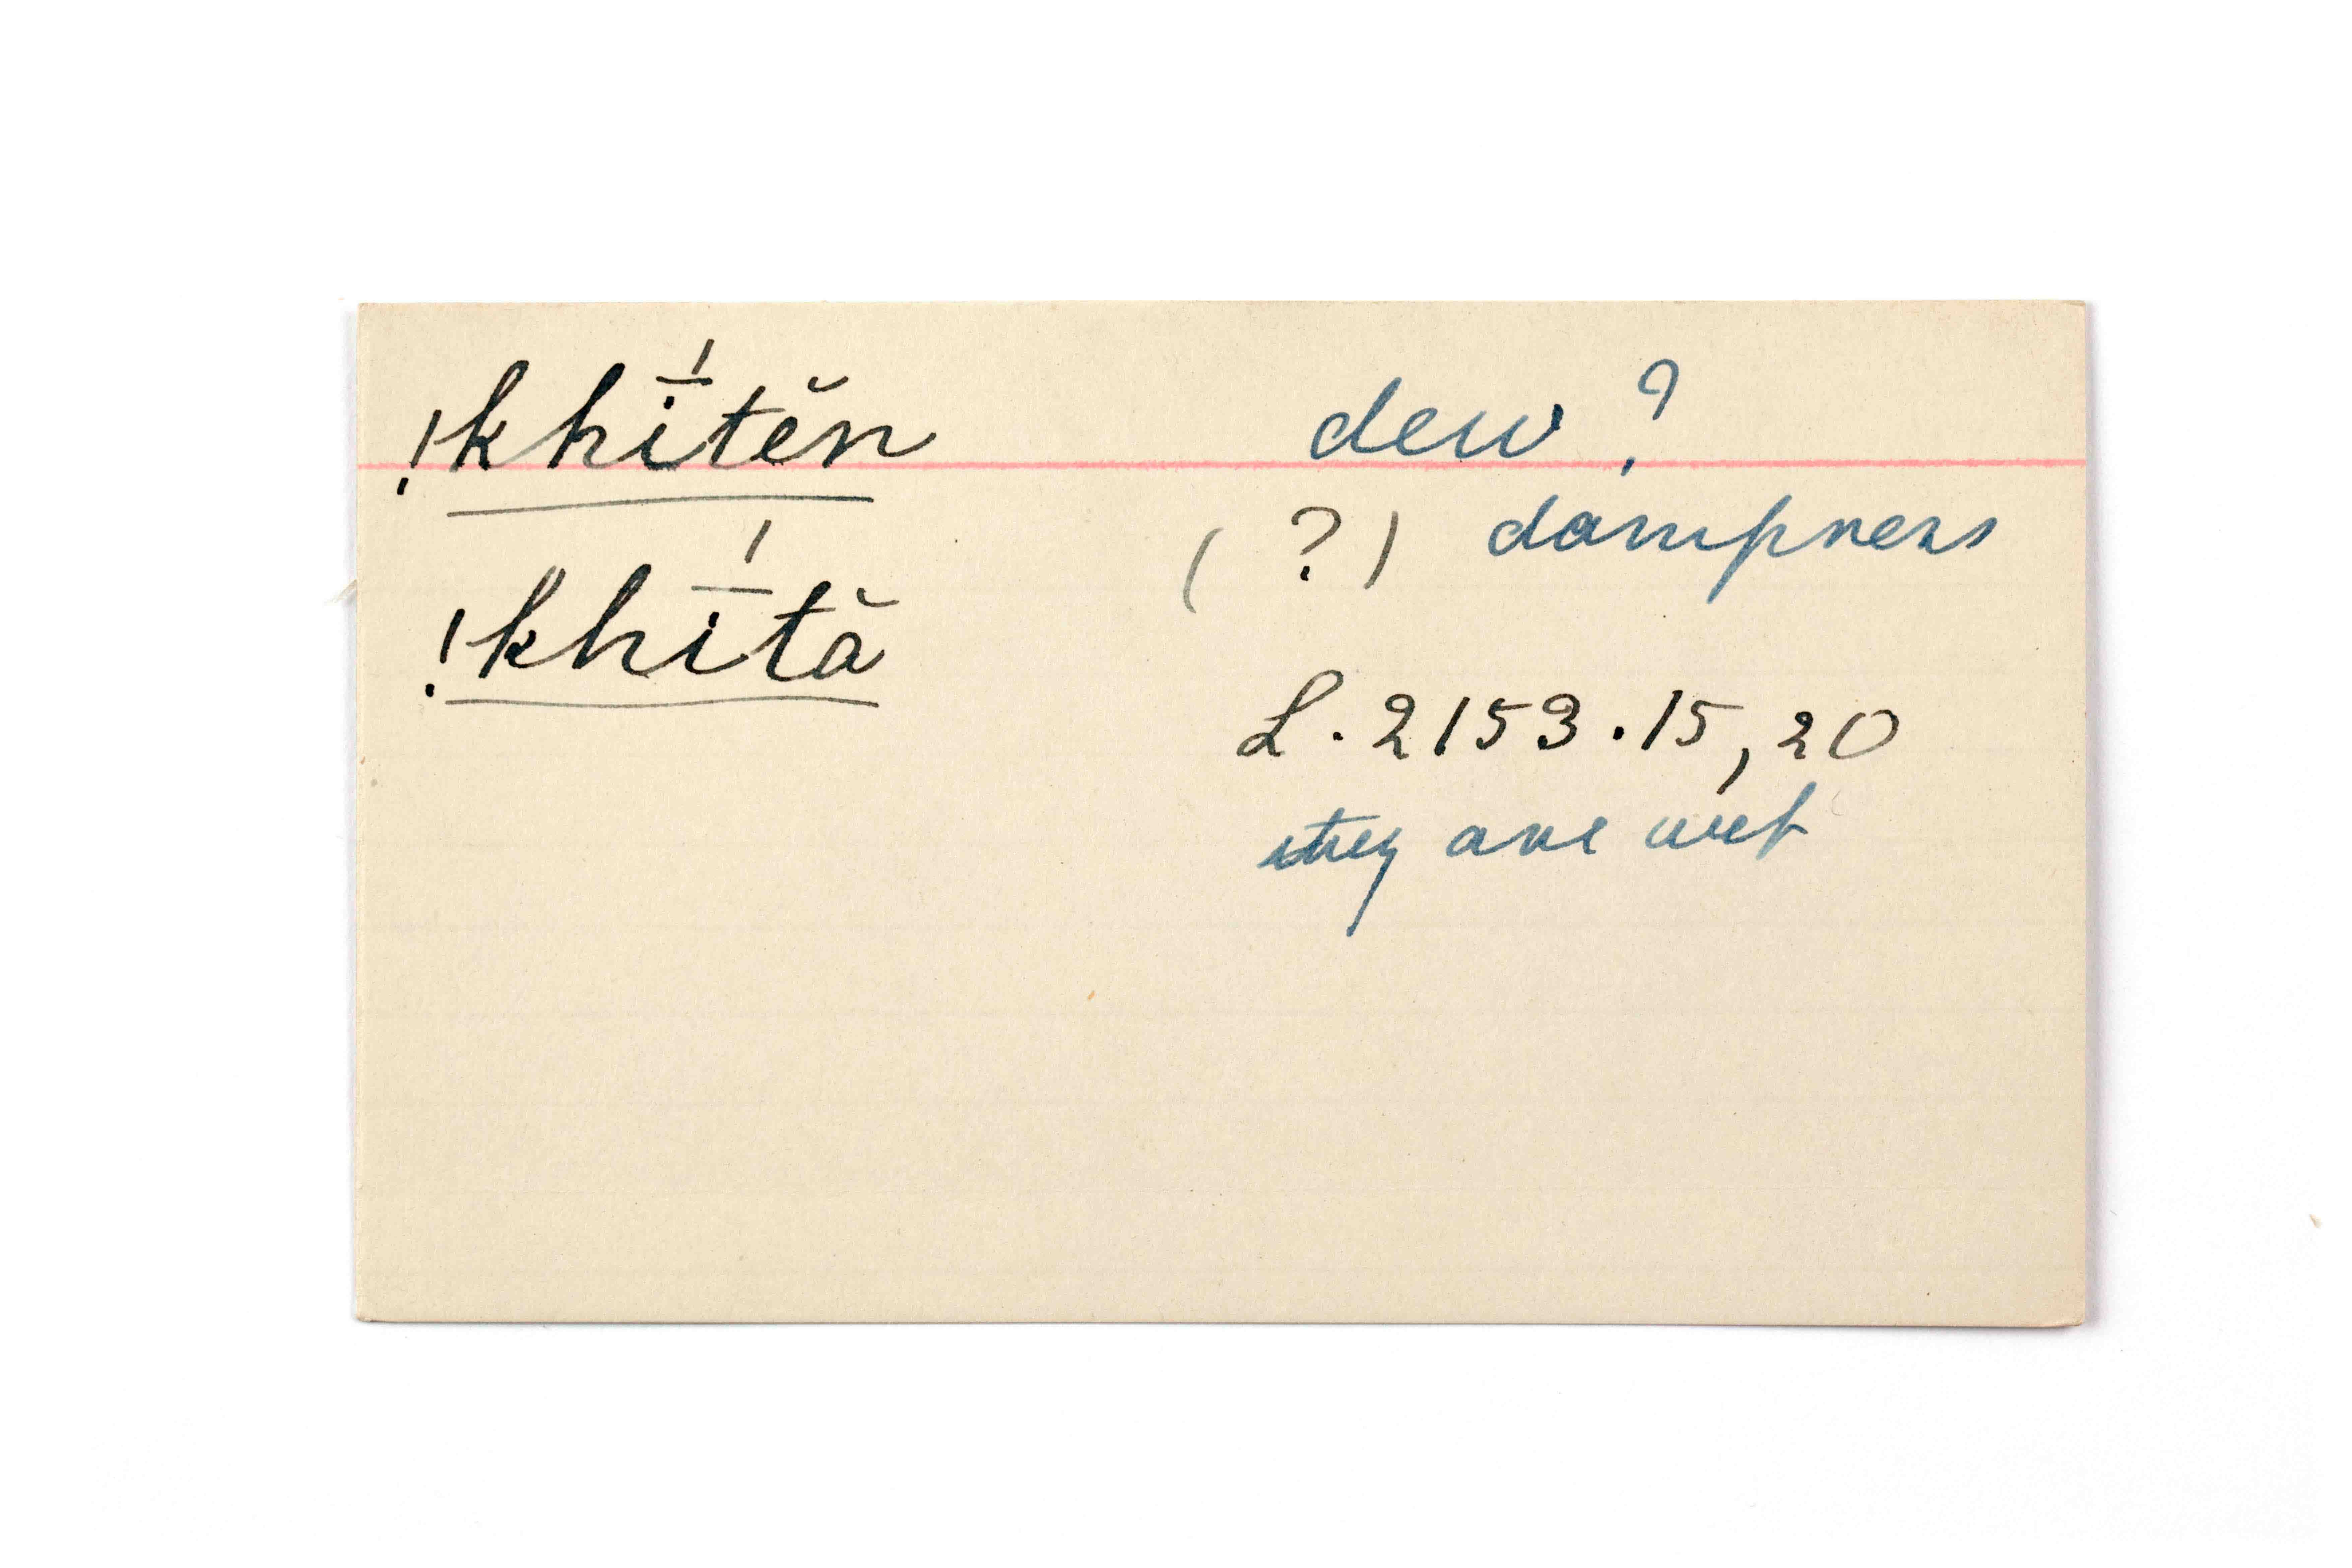 !khī́tĕn dew?
(?) dampness
!khī́tă
L. 2153.15, 20
they are wet